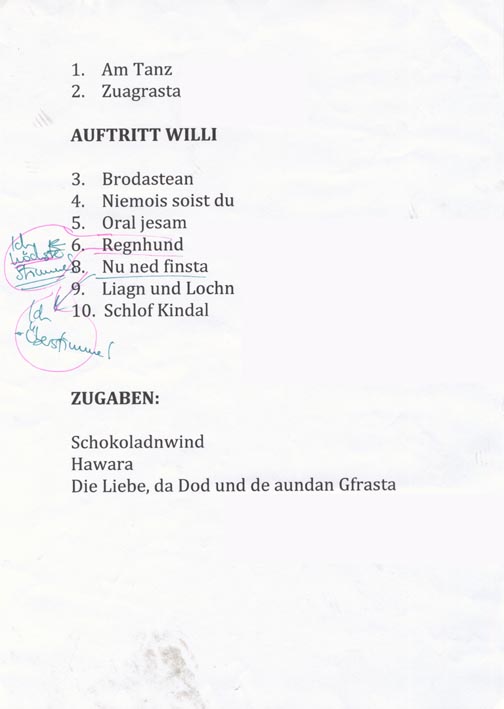 1. Am Tanz
2. Zuagrasta
AUFTRITT WILLI
3. Brodastean
4. Niemois soist du
5. Oral jesam
6. Regnhund
8. Nu ned finsta
9. Liagn und Lochn
10. Schlof Kindal
Ich
höchste
Stimme!
Ich
Überstimme!
ZUGABEN:
Schokoladnwind
Hawara
Die Liebe, da Dod und de aundan Gfrasta